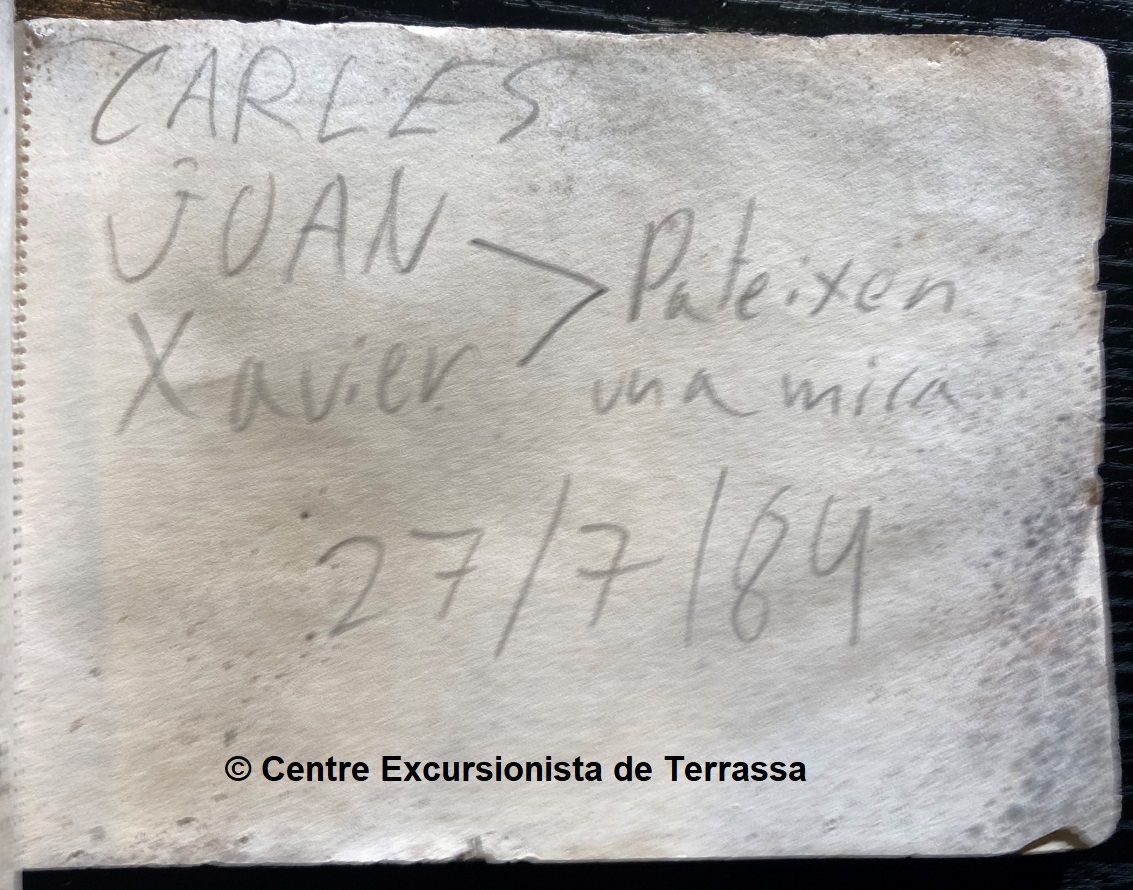 CARLES
JOAN
Xavier > Pateixen
una mica
27/7/84
© Centre Excursionista de Terrassa